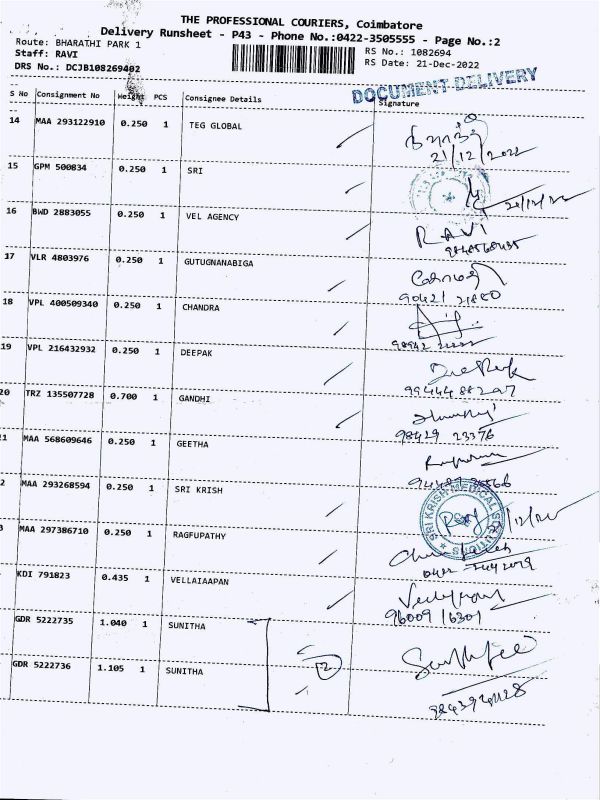 THE PROFESSIONAL COURIERS, Coimbatore
Delivery Runsheet - P43 - Phone No.:0422-3505555 - Page No.:2
Route: BHARATHI PARK 1 RS No.: 1082694
Staff: RAVI RS Date: 21-Dec-2022
DRS No.: DCJB108269402
DOCUMENT DELIVERY
S No Consignment No Weight PCS Consignee Details Signature
14 MAA 293122910 0.250 1 TEG GLOBAL
21/12/2022
15 GPM 500834 0.250 1 SRI
16 BWD 2883055 0.250 1 VEL AGENCY RAVI
17 VLR 4803976 0.250 1 GUTUGNANABIGA
90421 21880
18 VPL 400509340 0.250 1 CHANDRA
19 VPL 216432932 0.250 1 DEEPAK Deepak
99444 88297
20 TRZ 135507728 0.700 1 GANDHI
98429 23376
1 MAA 568609646 0.250 1 GEETHA
2 MAA 293268594 0.250 1 SRI KRISH
SRI KRISH MEDICAL
MAA 297386710 0.250 1 RAGFUPATHY
KDI 791823 0.435 1 VELLAIAAPAN
96009 16301
GDR 5222735 1.040 1 SUNITHA
2
GDR 5222736 1.105 1 SUNITHA